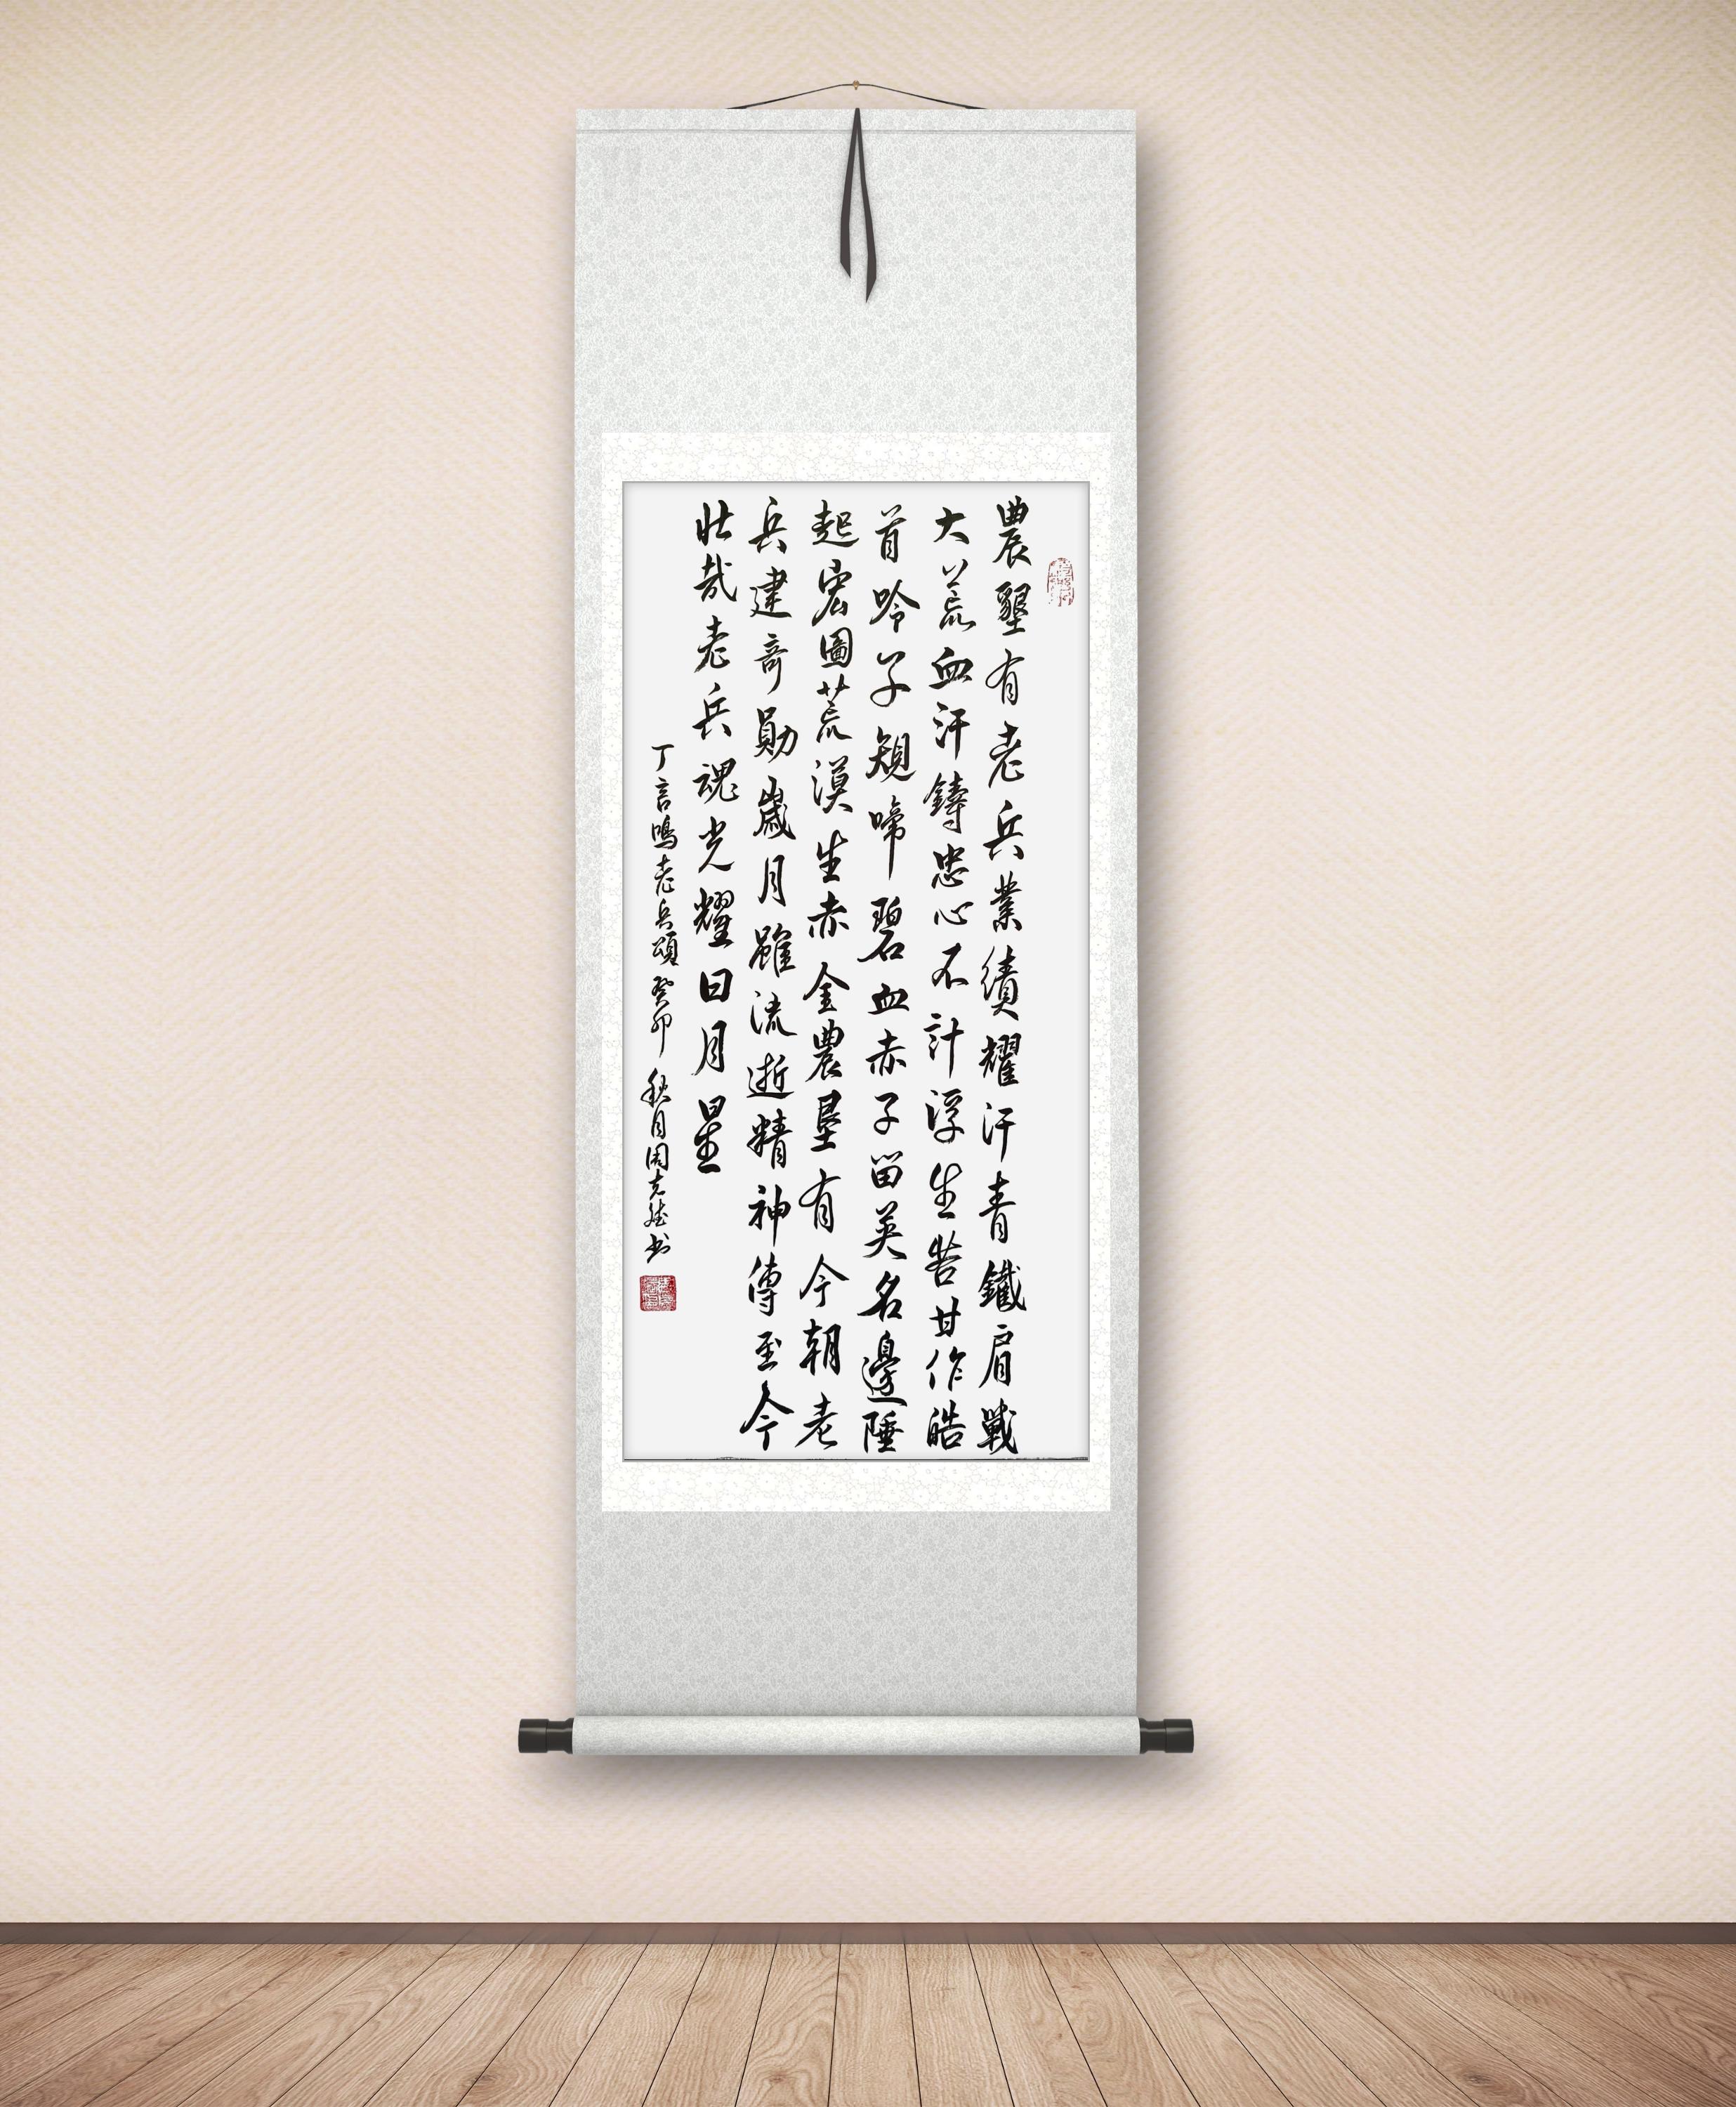 農墾有老兵業績耀汗青鐵肩戰
大荒血汗鑄忠心不計浮生苦甘作皓
首吟子規啼碧血赤子留英名邊陲
起宏圖荒漠生赤金農垦有今朝老
兵建奇勛歲月雖流逝精神傳至今
壯哉老兵魂光耀日月星
丁言鳴老兵頌癸卯秋月周克斌书